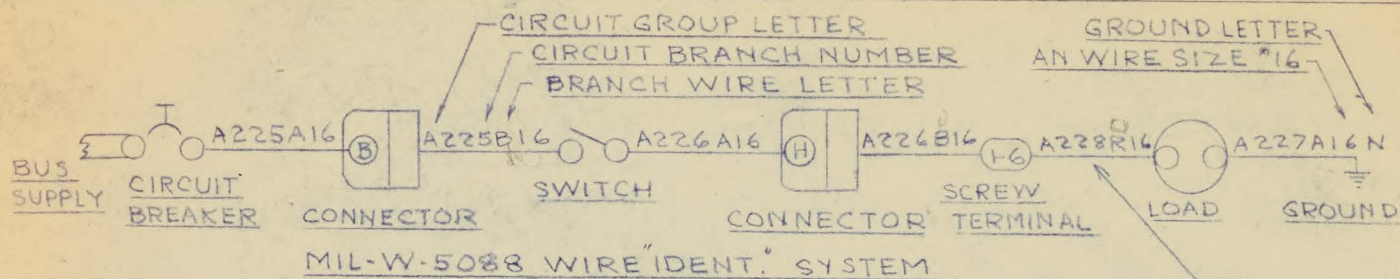 CIRCUIT GROUP LETTER
GROUND LETTER
CIRCUIT BRANCH NUMBER
AN WIRE SIZE #16
BRANCH WIRE LETTER
A225A16 B A225B16 A226A16 H A226B16 1-6 A228R16 A227A16N
BUS SUPPLY
CIRCUIT BREAKER
CONNECTOR
SWITCH
CONNECTOR
SCREW TERMINAL
LOAD
GROUND
MIL-W-5088 WIRE "IDENT." SYSTEM